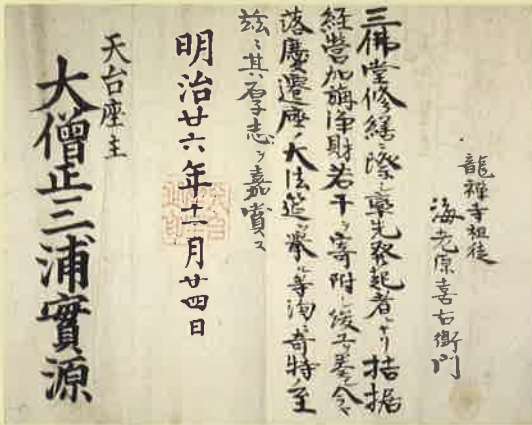 龍禅寺祖徒
海老原喜右衛門
三佛堂修繕ノ際ニ率先発起者トナリ拮据
経営加旃浄財若干ヲ寄附シ竣工ヲ奏シ今ヤ
落慶遷座ノ大法筵ヲ挙ル等洵ニ奇特ノ至
茲ニ其厚志ヲ嘉賞ス
明治廿六年十一月廿四日
天台座主
大僧正三浦實源